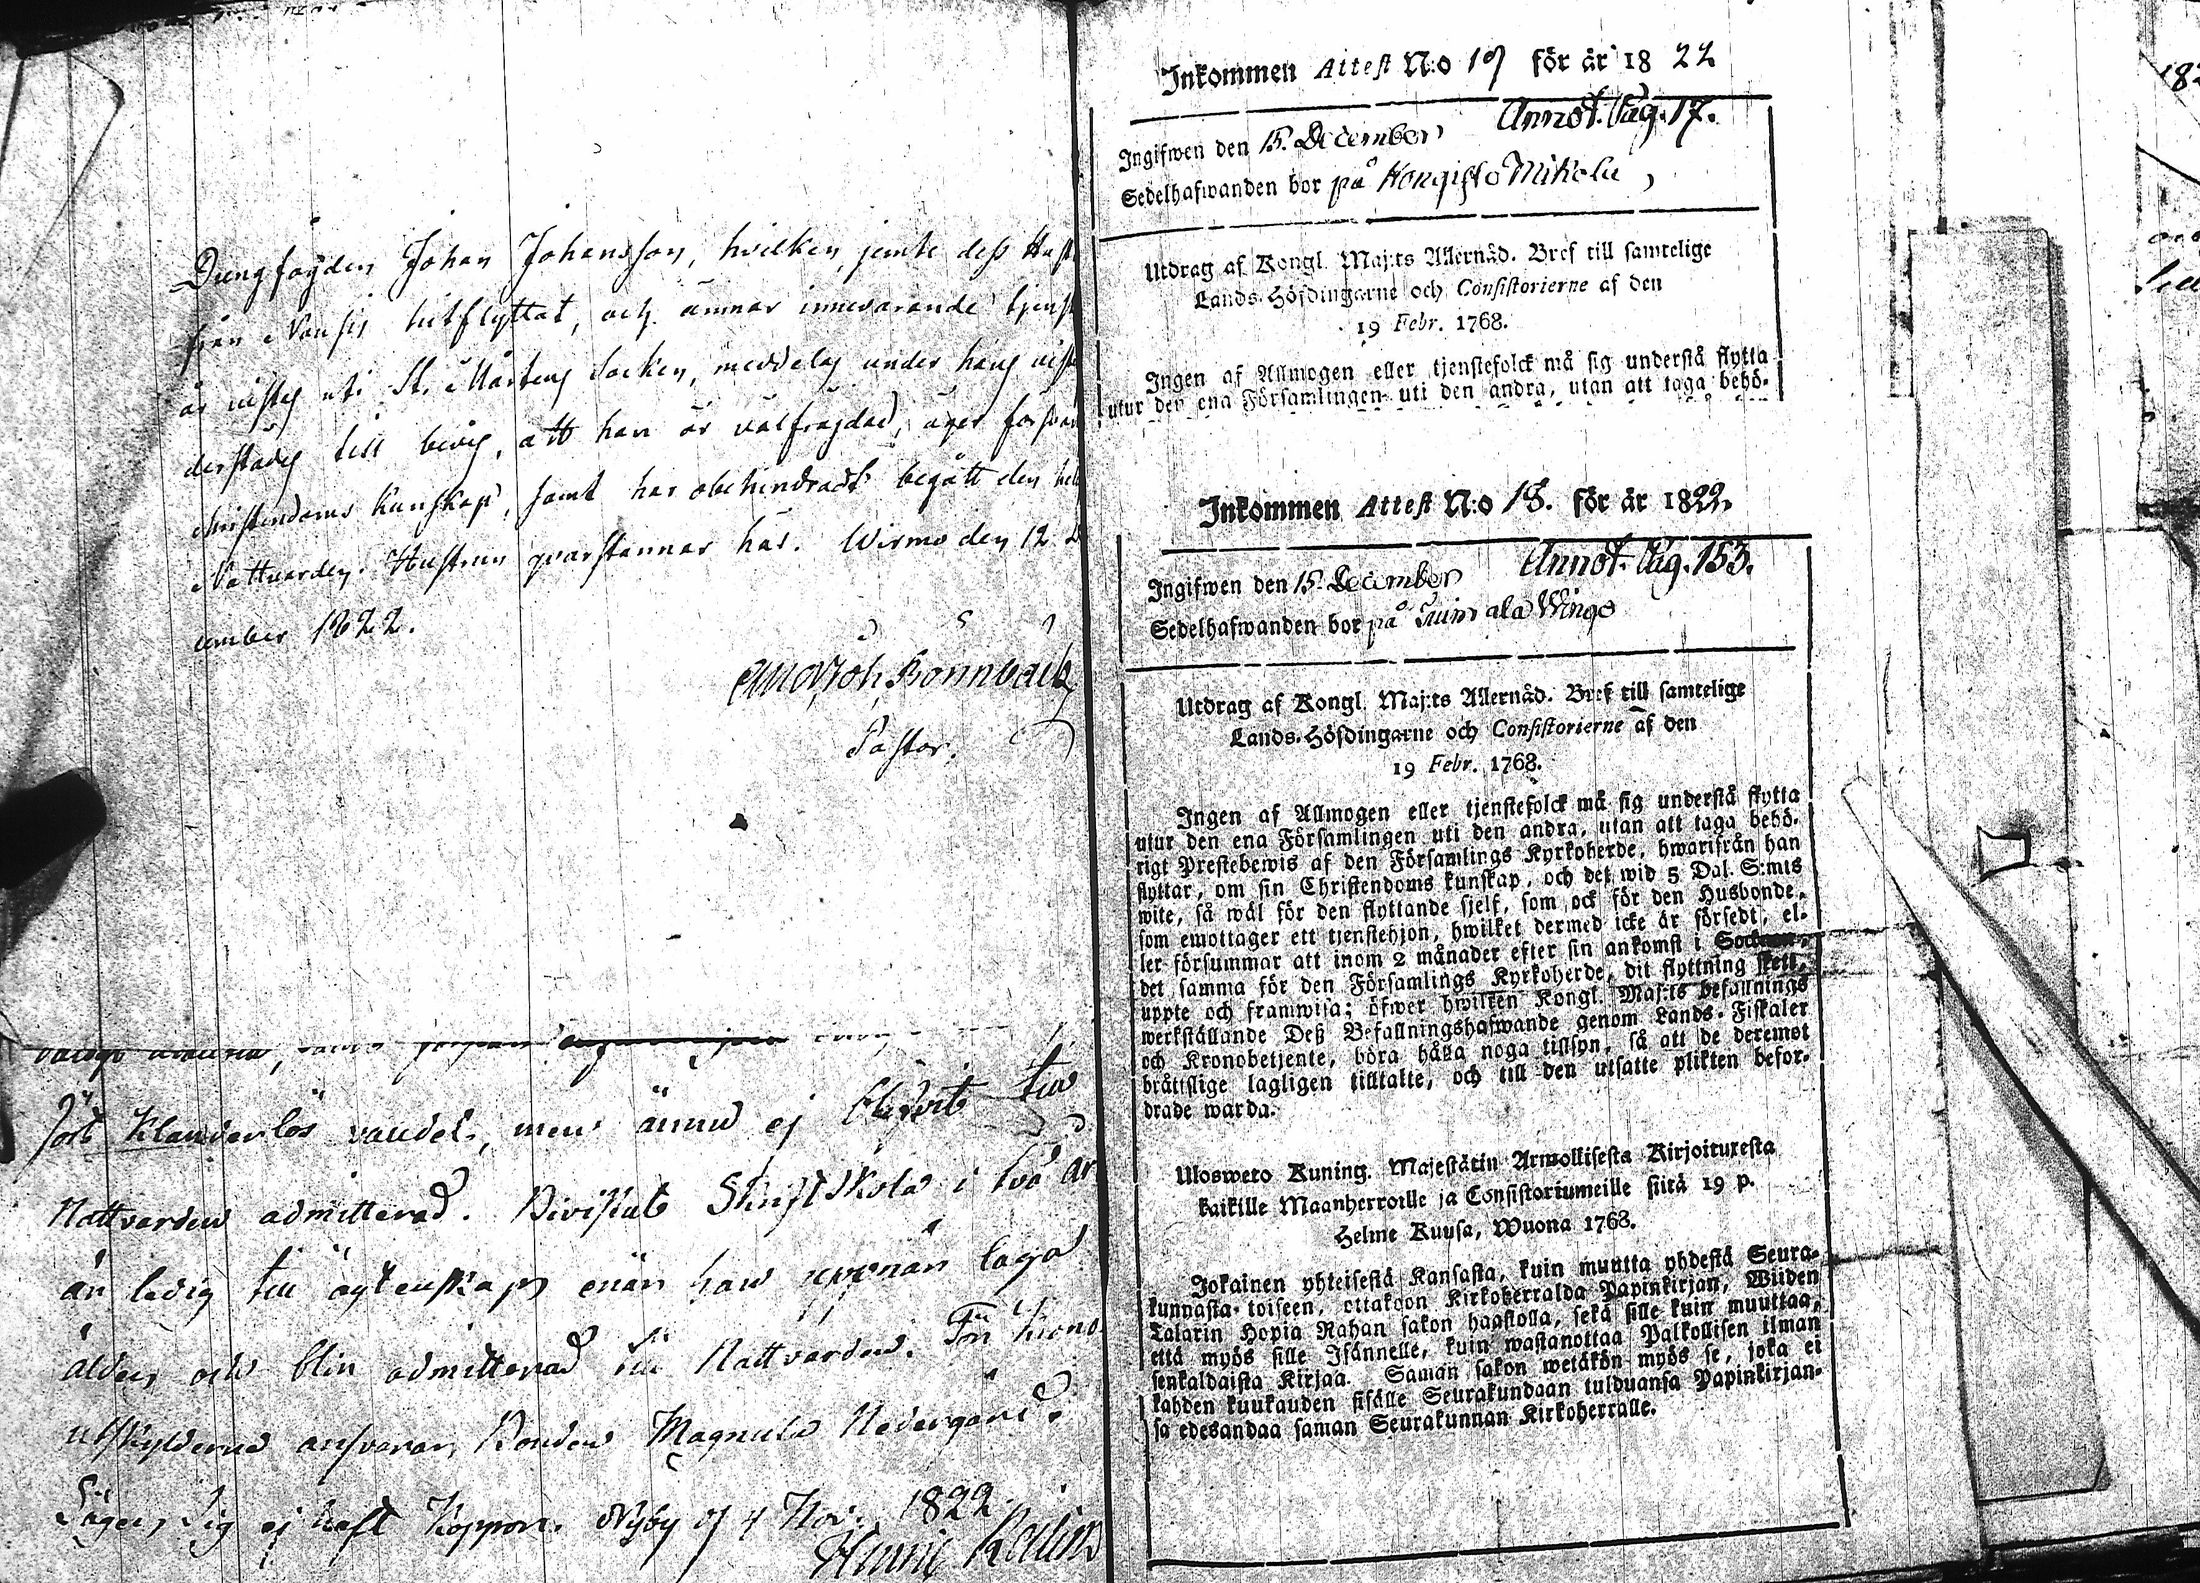 Drengfogden Johan Johansson, hvilken jemte dess
från Nousis hitflyttat, och ämnar innevarande
år vistas uti St. Mårtens Socken, meddelas under hans
derstädes till bevis, att han är välfrejdad, äger
Christendoms Kunskap, samt har obehindradt begått den
Nattvarden. Hustrun qvarstannar här. Wirmo den 12
cember 1822.
Pastor.
fört Klanderlös vandel, men ännu ej blifvit till
Nattvarden admitterad. Bevistat Skriftskola i två år
är ledig till ägtenskap enär han uppnår laga
ålder och blir admitterad till Nattvarden. För Krono
utskylderna ansvarar Bonden Magnula Nedergård.
Säger sig ej haft Koppor. Nyby d 4 Nov. 1822
Inkommen Attest N:o 17 för år 1822
Annot. Pag. 17.
Ingifwen den 15. December
Sedelhafwanden bor på Kongisto Mikola,
Utdrag af Kongl. Maj:ts Allernåd. Bref till samtelige
Lands-Höfdingarne och Consistorierne af den
19 Febr. 1768.
Ingen af Allmogen eller tjenstefolck må sig understå flytta
utur den ena Församlingen uti den andra, utan att taga behö-
Inkommen Attest N:o 18. för år 1822.
Annot. Pag. 153.
Ingifwen den 15. December
Sedelhafwanden bor på
Utdrag af Kongl. Maj:ts Allernåd. Bref till samtelige
Lands-Höfdingarne och Consistorierne af den
19 Febr. 1768.
Ingen af Allmogen eller tjenstefolck må sig understå flytta
utur den ena Församlingen uti den andra, utan att taga behö-
rigt Prestebewis af den Församlings Kyrkoherde, hwarifrån han
flyttar, om sin Christendoms kunskap, och det wid 5 Dal. S:mts
wite, så wäl för den flyttande sjelf, som ock för den Husbonde,
som emottager ett tjenstehjon, hwilket dermed icke är försedt, el-
ler försummar att inom 2 månader efter sin ankomst i Socknen,
det samma för den Församlings Kyrkoherde, dit flyttning skett,
uppte och framwisa; öfwer hwilken Kongl. Maj:ts befallnings
werkställande Deß Befallningshafwande genom Lands-Fiskaler
och Kronobetjente, böra hålla noga tillsyn, så att de deremot
bråttslige lagligen tilltalte, och till den utsatte plikten befor-
drade warda.
Ulosweto Kuning. Majestätin Armollisesta Kirjoituxesta
kaikille Maanherroille ja Consistoriumeille siitä 19 p.
Helme Kuusa, Wuona 1768.
Jokainen yhteisestä Kansasta, kuin muutta yhdestä Seura-
kunnasta toiseen, ottakoon Kirkoherralda Papinkirjan, Wiiden
Talarin Hopia Rahan sakon haastolla, sekä sille kuin muuttaa,
että myös sille Isännelle, kuin wastanottaa Palkollisen ilman
senkaldaista Kirjaa. Saman sakon wetäkön myös se, joka ei
kahden kuukauden sisälle Seurakundaan tulduansa Papinkirjan-
sa edesandaa saman Seurakunnan Kirkoherralle.